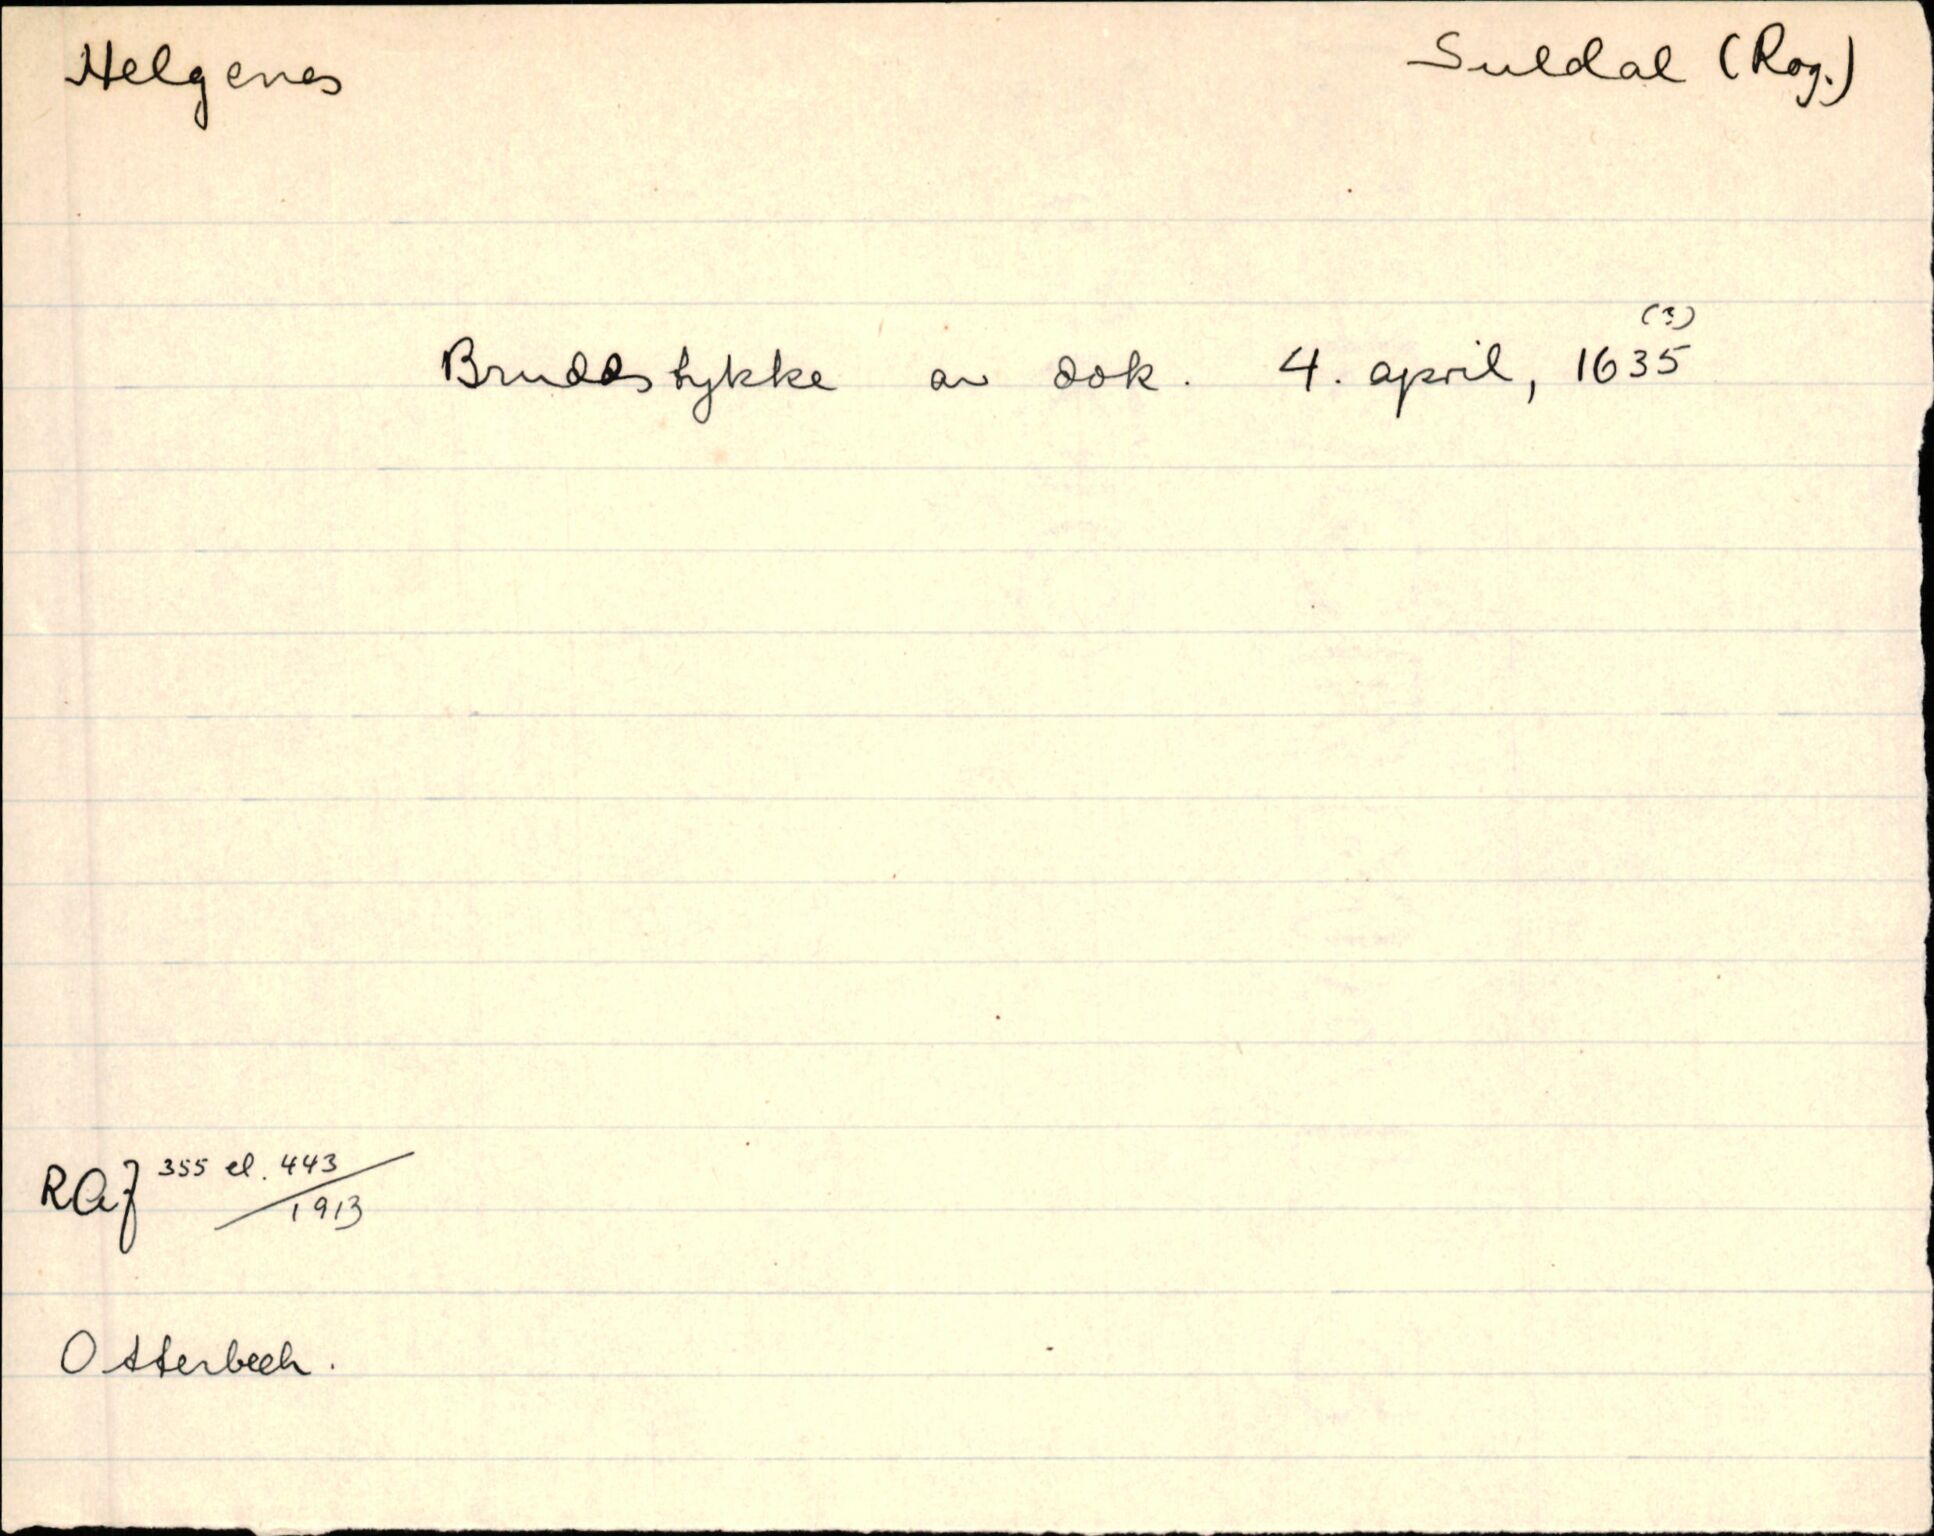 Helgenes Suldal (Rog.)
(?)
Bruddstykke av dok. 4. april, 1635
RAJ 355 el. 443/1913
Otterbech.